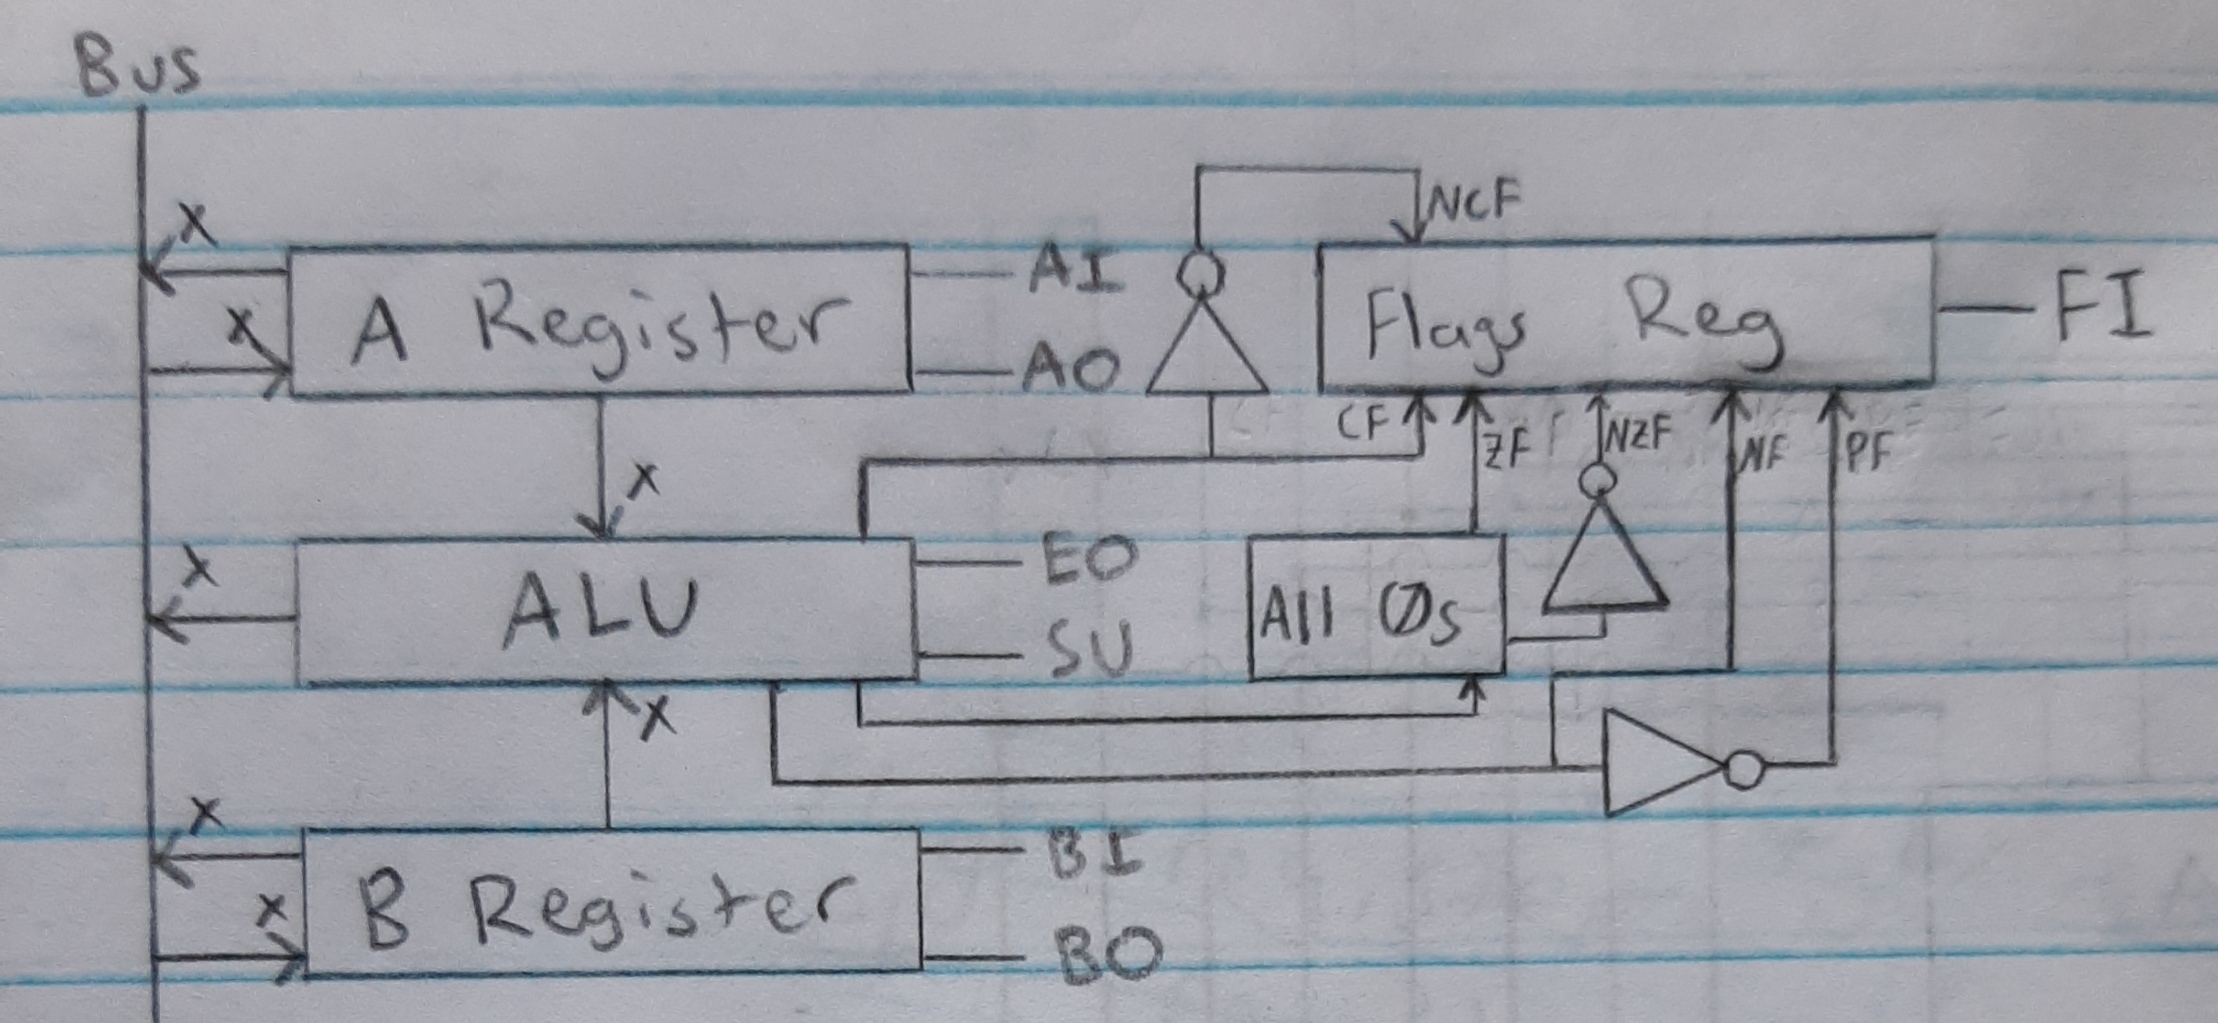 Bus
X
NCF
A Register
AI
X
AO
Flags Reg
FI
CF
ZF
NZF
NF
PF
X
X
ALU
EO
SU
All 0s
X
X
B Register
BI
X
BO